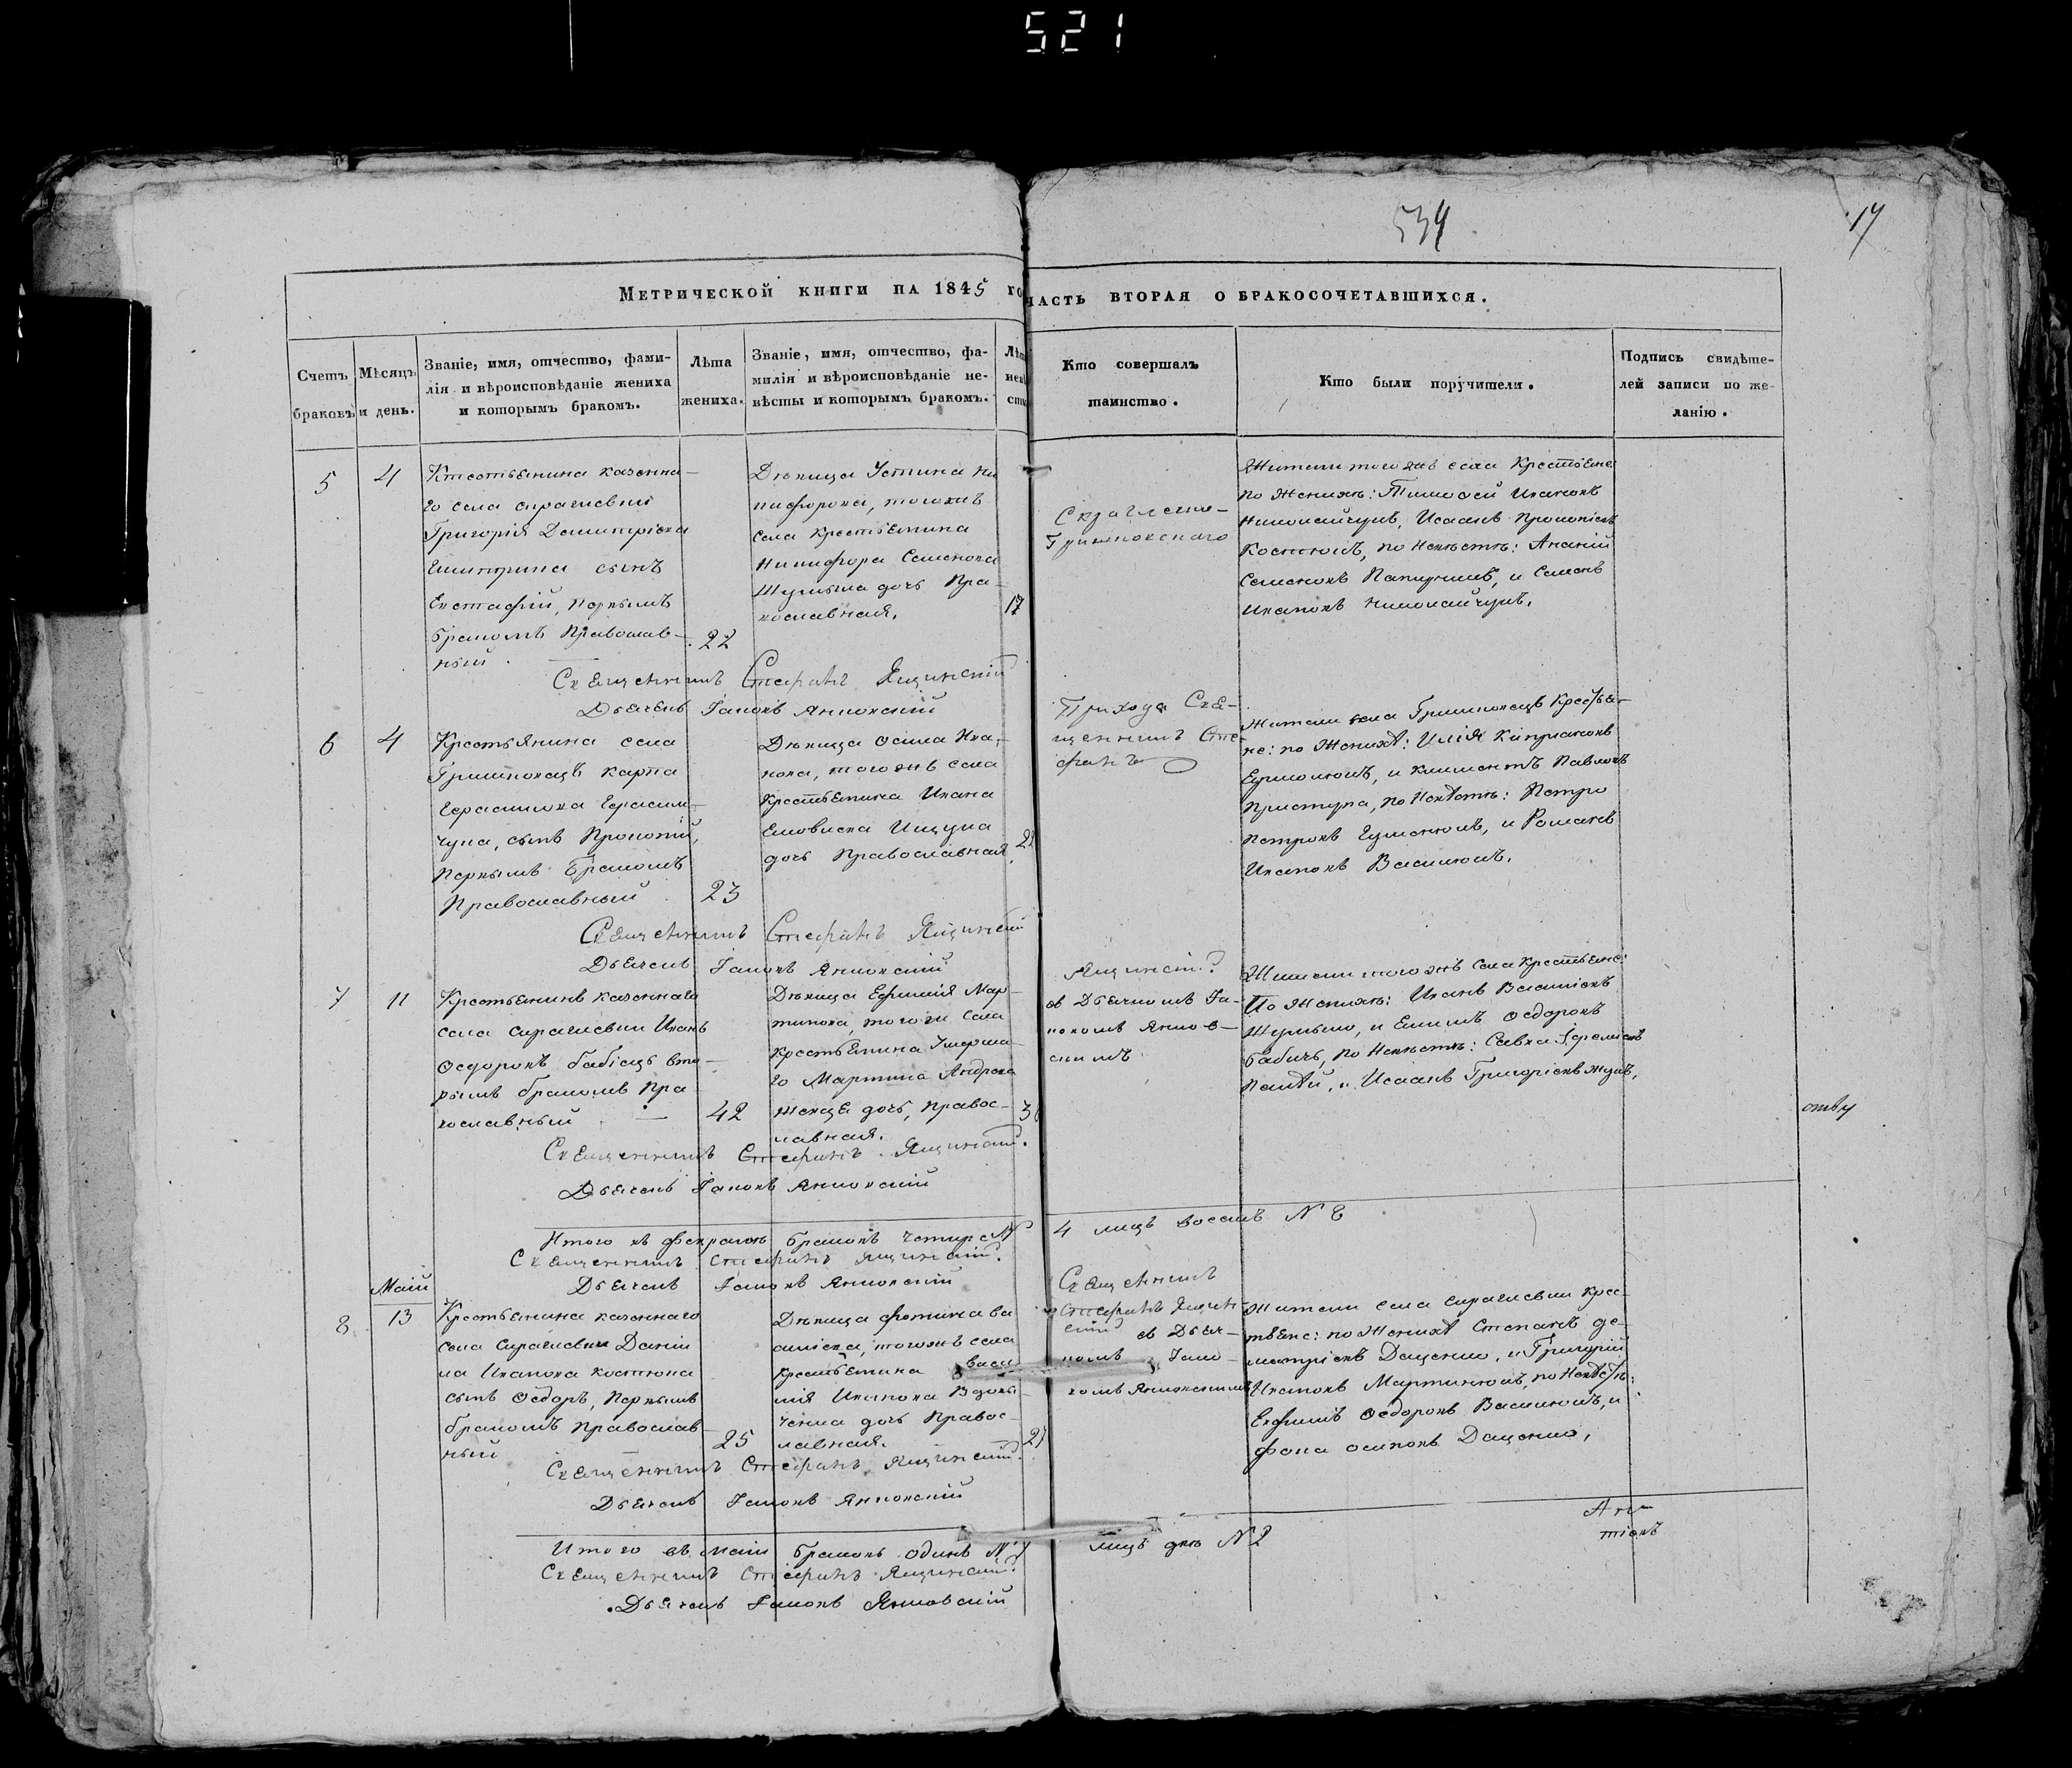 521
534
17
Метрической книги на 1845 го
часть вторая о бракосочетавшихся.
Счетъ
браковъ
Мѣсяцъ
и день.
Званіе, имя, отчество, фами-
лія и вѣроисповѣданіе жениха
и которымъ бракомъ.
Лѣта
жениха.
Званіе, имя, отчество, фа-
милія и вѣроисповѣданіе не-
вѣсты и которымъ бракомъ.
Лѣт
нев
сты
Кто совершалъ
таинство.
Кто были поручители.
Подпись свидѣте-
лей записи по же-
ланію.
5
4
Крестьянина казенна-
го села
Григорія Димитріева
сынъ
Евстафій, первымъ
бракомъ православ-
ный.
22
Дѣвица Устина Ни
кифорова, тогожъ
села крестьянина
Никифора Семенова
Шумыла дочь Пра-
вославная.
17
Жители того жъ села крестьяне
по женихѣ: Тимофей Ивановъ
Николайчукъ, Исаакъ Прокопіевъ
Костюкъ, по невѣстѣ: Ананій
Семеновъ и Семенъ
Ивановъ Николайчукъ.
Священникъ Стефанъ Ящинскій
Дьячекъ Іаковъ Янковскій
6
4
Крестьянина села
Гришковецъ Карпа
Герасимова Герасим-
чука, сынъ Прокопій,
первымъ бракомъ
Православный
23
Дѣвица Ива-
нова, тогожъ села
крестьянина Ивана
Ищука
дочь Православная,
2
Прихода Свя-
щенникъ Сте-
фанъ
Жители села Гришковецъ крестья-
не: по женихѣ: Илія Кипріановъ
Ермолюкъ, и Климентъ Павловъ
Приступа, по невѣстѣ: Петро
Петровъ Гуменюкъ, и Романъ
Ивановъ Василюкъ.
Священникъ Стефанъ Ящинскій
Дьячекъ Іаковъ Янковскій
7
11
Крестьянинъ казеннаго
села Иванъ
Ѳедоровъ Бабіецъ вто-
рымъ бракомъ Пра
вославный
42
Дѣвица Ефимія Мар-
тинова, тогоже села
крестьянина умерша-
го Мартина Андреева
дочь, Правос-
лавная.
3
Ящинскій
съ Дьячкомъ Іа-
ковомъ Янков-
скимъ
Жители того жъ села крестьяне:
По женихѣ: Иванъ Василіевъ
Шумыло, и Ѳедоровъ
Бабичъ, по невѣстѣ: Савка
и Исаакъ Григоріевъ
Священникъ Стефанъ Ящинскій.
Дьячекъ Іаковъ Янковскій
Итого въ февралѣ браковъ четыре №
4 лицъ восемъ № 8
Священникъ Стефанъ Ящинскій.
Дьячекъ Іаковъ Янковскій
Маій
8
13
Крестьянина казеннаго
села Даніи
ла Иванова Костюка
сынъ Ѳедоръ, первымъ
бракомъ православ
ный
25
Дѣвица Фотина Ва
силіева, тогожъ села
крестьянина Васи
лія Иванова
дочь Правос-
лавная.
2
Священникъ
Стефанъ Ящин-
скій съ Дьяч-
комъ Іако-
вомъ Янковскимъ
Жители села крес-
тьяне: по женихѣ Степанъ Де-
митріевъ Даценко, и Григорій
Ивановъ Мартинюкъ, по невѣстѣ:
Ѳедоровъ Василюкъ, и
Фока Осиповъ Даценко.
Священникъ Стефанъ Ящинскій.
Дьячекъ Іаковъ Янковскій
Итого въ маіи браковъ одинъ № 1
лицъ двѣ № 2
Священникъ Стефанъ Ящинскій.
Дьячекъ Іаковъ Янковскій